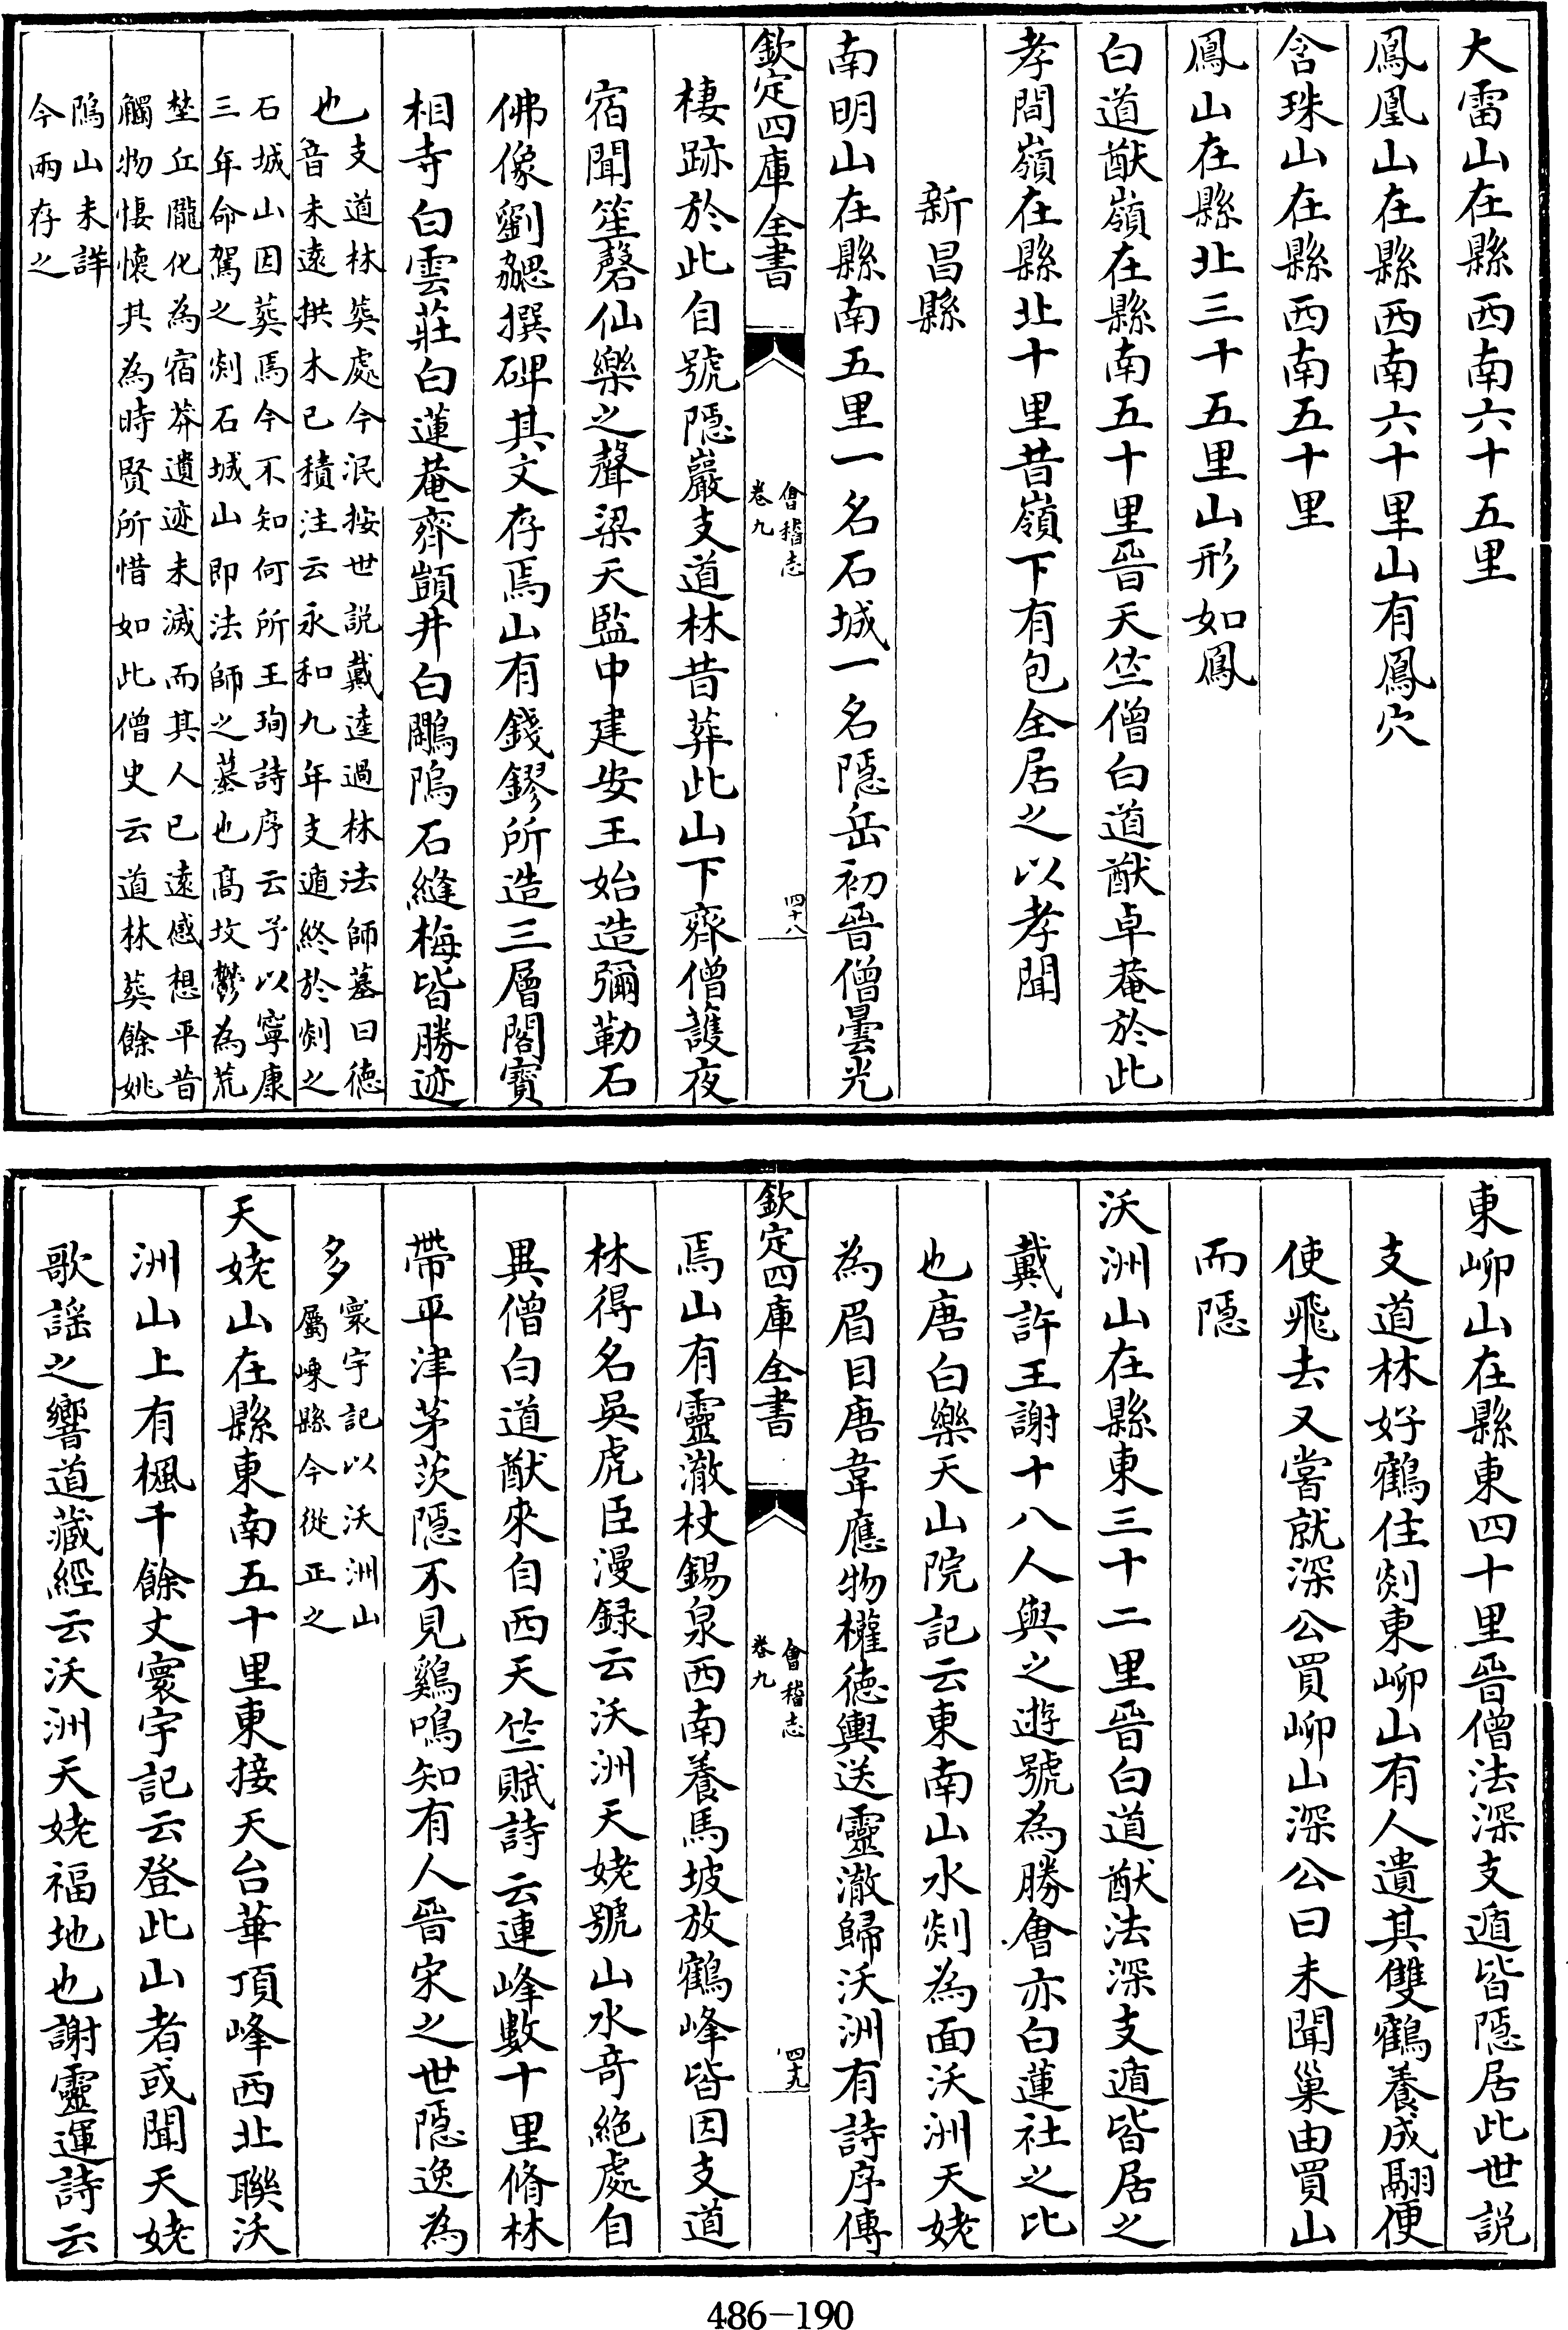 大雷山在縣西南六十五里
鳳凰山在縣西南六十里山有鳳穴
含珠山在縣西南五十里
鳳山在縣北三十五里山形如鳳
白道猷嶺在縣南五十里晉天竺僧白道猷卓菴於此
孝間嶺在縣北十里昔嶺下有包全居之以孝聞
新昌縣
南明山在縣南五里一名石城一名隱岳初晉僧曇光
欽定四庫全書
會稽志
卷九
四十八
棲跡於此自號隱巖支道林昔葬此山下齊僧護夜
宿聞笙磬仙樂之聲梁天監中建安王始造彌勒石
佛像劉勰撰碑其文存焉山有錢鏐所造三層閣寶
相寺白雲莊白蓮菴齊顗井白鷴隝石縫梅皆勝迹
也
支道林葬處今泯按世説戴逵過林法師墓曰徳
音未遠拱木已積注云永和九年支遁終於剡之
石城山因葬焉今不知何所王珣詩序云予以寧康
三年命駕之剡石城山即法師之墓也髙坟鬱為荒
埜丘隴化為宿莽遺迹未滅而其人已遠感想平昔
觸物悽懐其為時賢所惜如此僧史云道林葬餘姚
隖山未詳
今兩存之
東峁山在縣東四十里晉僧法深支遁皆隱居此世説
支道林好鶴住剡東峁山有人遺其雙鶴養成翮便
使飛去又嘗就深公買峁山深公曰未聞巢由買山
而隱
沃洲山在縣東三十二里晉白道猷法深支遁皆居之
戴許王謝十八人與之遊號為勝會亦白蓮社之比
也唐白樂天山院記云東南山水剡為面沃洲天姥
為眉目唐韋應物權徳輿送靈澈歸沃洲有詩序傳
欽定四庫全書
會稽志
卷九
四十九
焉山有靈澈杖錫泉西南養馬坡放鶴峰皆因支道
林得名吳虎臣漫録云沃洲天姥號山水竒絶處自
異僧白道猷來自西天竺賦詩云連峰數十里脩林
帶平津茅茨隱不見雞鳴知有人晉宋之世隱逸為
多
寰宇記以沃洲山
屬嵊縣今從正之
天姥山在縣東南五十里東接天台華頂峰西北聯沃
洲山上有楓千餘丈寰宇記云登此山者或聞天姥
歌謡之響道藏經云沃洲天姥福地也謝靈運詩云
486-190